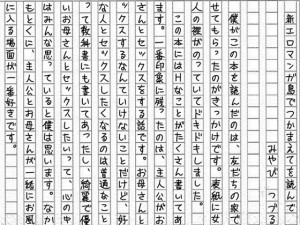 新エロマンガ島でつかまえてを読んで
みやび つづる
僕がこの本を読んだのは、友だちの家で
せてもらったのがきっかけです。表紙に女
人の裸がのっていてドキドキしました。
この本にはHなことがたくさん書いてあ
ます。一番印象に残ったのは、主人公がお
さんとセックスをする話です。お母さんと
ックスするなんていけないことだけど、好
な人とセックスしたくなるのは普通なこと
って教科書にも書いてあったし、綺麗で優
いお母さんとセックスしたいって、心の中
はみんな思っていると僕は思います。なか
もとくに、主人公とお母さんが一緒にお風
に入る場面が一番好きです。